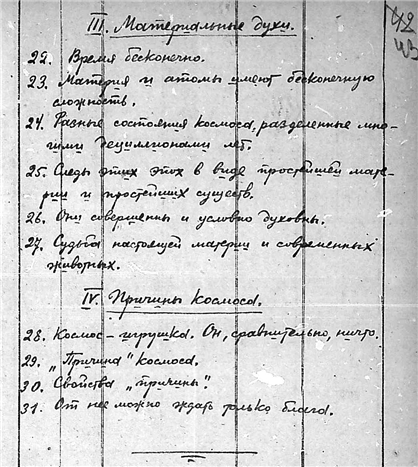 III. Материальные духи.
22. Время бесконечно.
23. Материя и атомы имеют бесконечную
сложность.
24. Разные состояния космоса, разделенные мно-
гими дециллионами лет.
25. Следы этих эпох в виде простейшей мате-
рии и простейших существ.
26. Они совершенны и условно духовны.
27. Судьба настоящей материи и современных
животных.
IV. Причины космоса.
28. Космос – игрушка. Он, сравнительно, ничто.
29. „Причина" космоса.
30. Свойства „причины".
31. От нее можно ждать только блага.
42